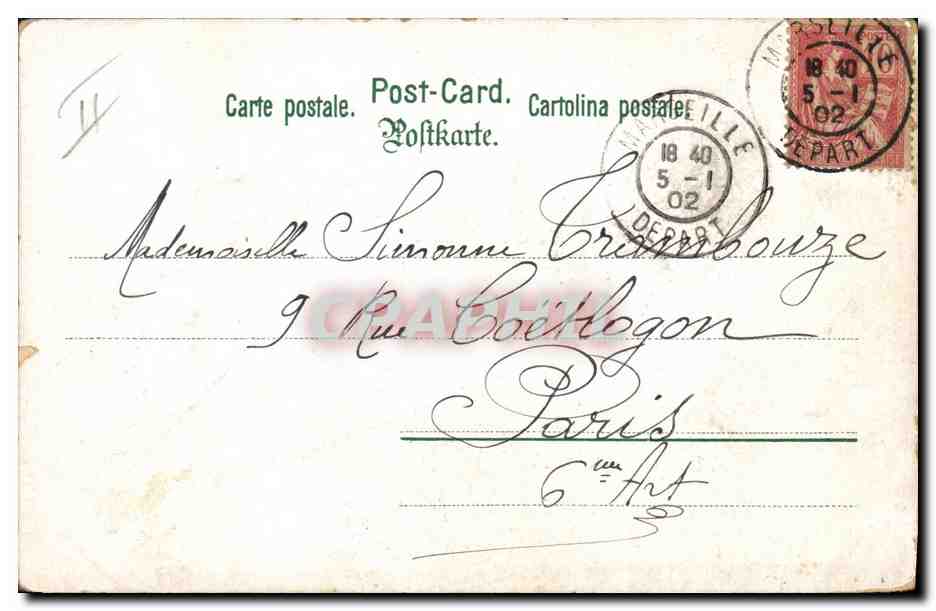 II
Carte postale. Post-Card. Cartolina postale.
Postkarte.
MARSEILLE
18 40
5 - 1
02
DEPART
MARSEILLE
18 40
5 - 1
02
DEPART
10
Mademoiselle Simonne Trembouze
9 Rue Coëtlogon
Paris
6ème Art
CPAPHIL